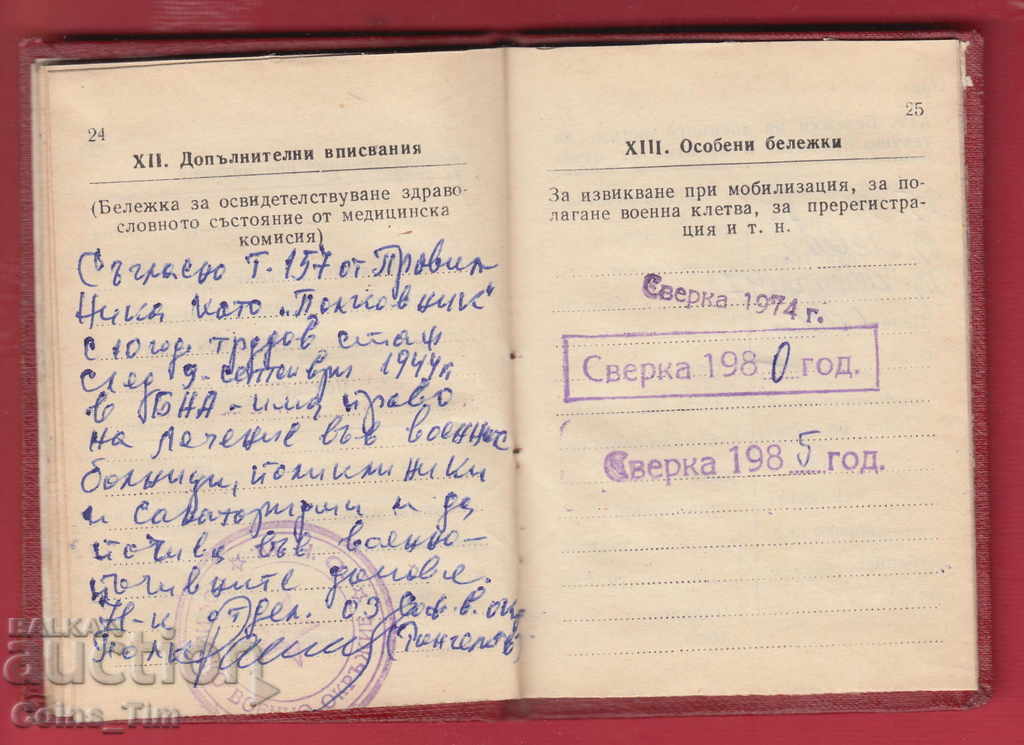 24
XII. Допълнителни вписвания
(Бележка за освидетелствуване здраво-
словното състояние от медицинска
комисия)
Съгласно т. 157 от Правил-
ника като „Полковник"
с 10 год. трудов стаж
след 9-септемврий 1944 г.
в БНА - има право
на лечение във военните
болници, поликлиники
и санаториуми и да
почива във военно-
почивните домове.
Н-к отдел. 03 Соф. в. окр
Полк.
25
XIII. Особени бележки
За извикване при мобилизация, за по-
лагане военна клетва, за пререгистра-
ция и т. н.
Сверка 1974 г.
Сверка 1980 год.
Сверка 1985 год.
BALKAN
auction
Colos_Tim